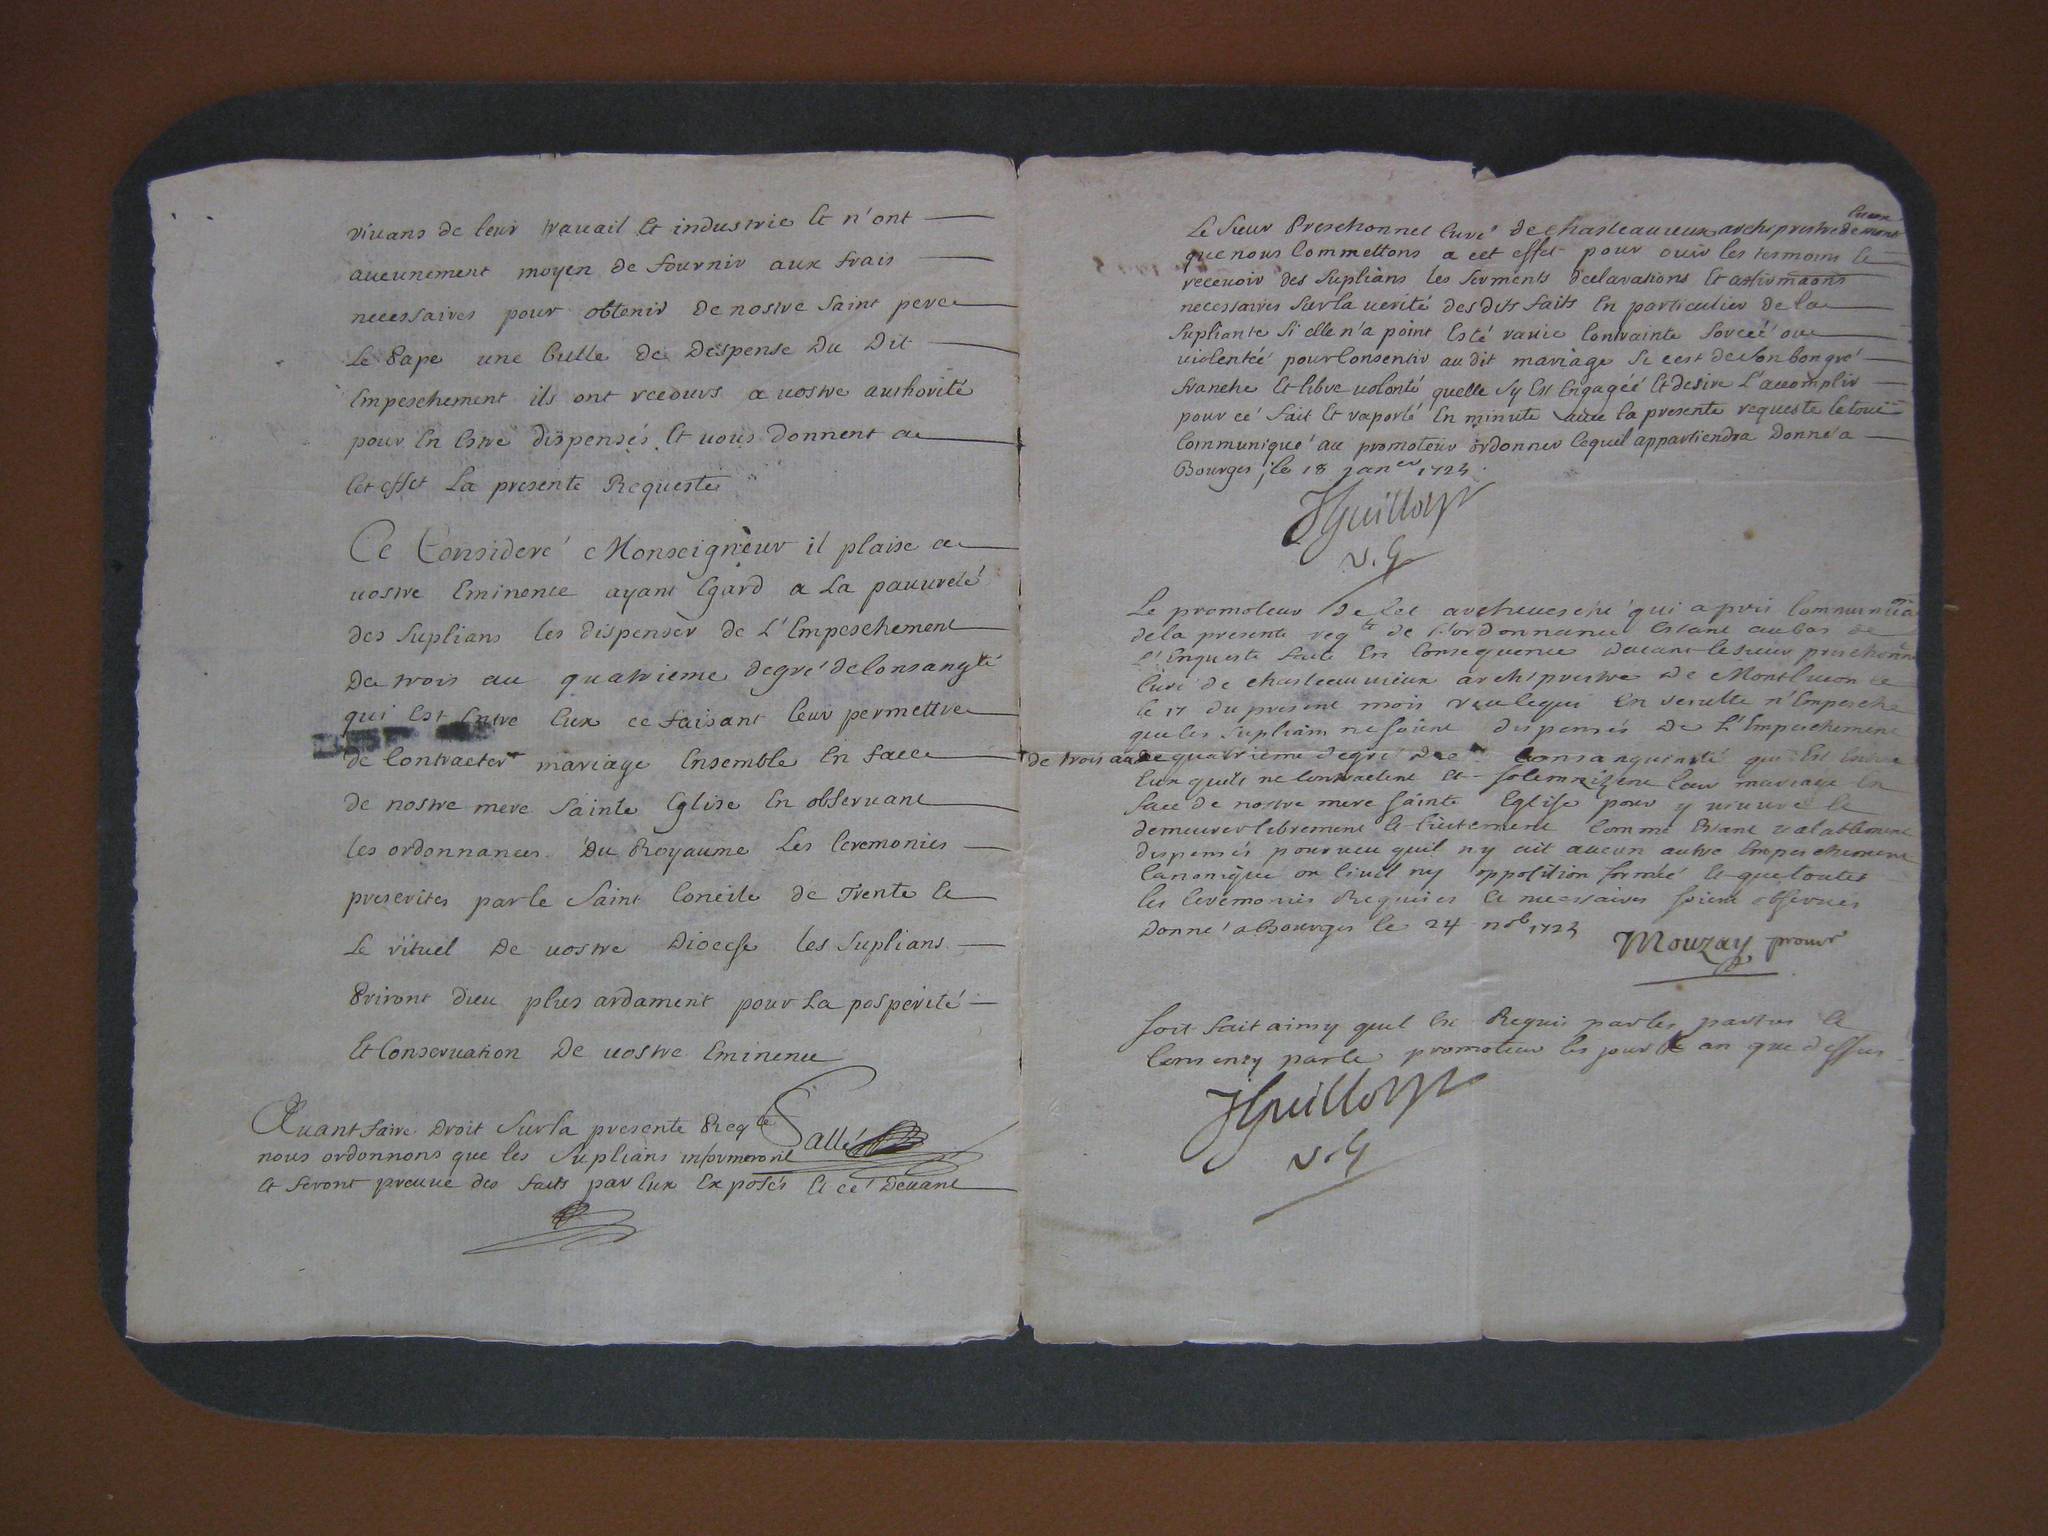 vivans de leur travail et industrie et n'ont
aucunement moyen de fournir aux frais
necessaires pour obtenir de nostre Saint pere
Le Pape une bulle de Dispense Du Dit
Empeschement ils ont recours a vostre authorité
pour En Estre dispensés Et vous donnent a
Cet effet La presente Requeste
Ce Consideré Monseigneur il plaise a
vostre Eminence ayant Egard a La pauvreté
des Suplians les dispenser de L'Empeschement
De trois au quatrieme degré de Consang.té
qui Est Entre Eux ce faisant leur permettre
de Contracter mariage Ensemble En face
de nostre mere Sainte Eglise En observant
les ordonnances Du Royaume Les Ceremonies
prescrites par le Saint Concile de Trente et
Le rituel De vostre Diocese les Suplians
Priront Dieu plus ardament pour La posperité
Et Conservation De vostre Eminence
Sallé
Avant faire Droit Sur la presente Req.te
nous ordonnons que les Suplians informeront
et feront preuve des faits par Eux Exposés et ce Devant
Le Sieur Preschonnet Curé de Chasteauvieux archiprestre de mont
lucon
que nous Commettons a cet effet pour ouir les tesmoins et
recevoir des Suplians les Serments declarations Et affirmaons
necessaires Sur la verité des dits faits En particulier de la
Supliante Si elle n'a point Esté ravie Contrainte forcée ou
violentée pour Consentir au dit mariage Si c'est de Son bon gré
franche Et libre volonté quelle Sy Est Engagée Et desire L'accomplir
pour ce fait Et raporté En minute avec la presente requeste le tout
Communiqué au promoteur ordonner ce quil appartiendra Donné a
Bourges le 18 jan.er 1723
JGuillot
V.G
Le promoteur De Cet archevesché qui a pris Communica
de la presente req.te de l'ordonnance Estant au bas de
L'Enqueste faite En Consequence devant le sieur preschonnet
Curé de chasteauvieux archiprestre de Montlucon
le 17 du present mois veu ce qui En resulte n'Empesche
que les Suplians ne soient dispensés De L'Empeschement
de trois au quatrieme degré de Consanguinité qui Est Entre
Eux quils ne Contractent et Solemnizent leur mariage En
face de nostre mere Sainte Eglise pour y vivre et
demeurer librement et licitement Comme Estant valablement
dispensés pourveu quil ny ait aucun autre Empeschement
Canonique ou Civil ny opposition formée et que toutes
les Ceremonies Requises et necessaires soient observées
Donné a Bourges le 24 1723
Mouzay promr
Soit fait ainsy quil Est Requis par les parties et
Consenty par le promoteur les jour et an que dessus
JGuillot
V.G